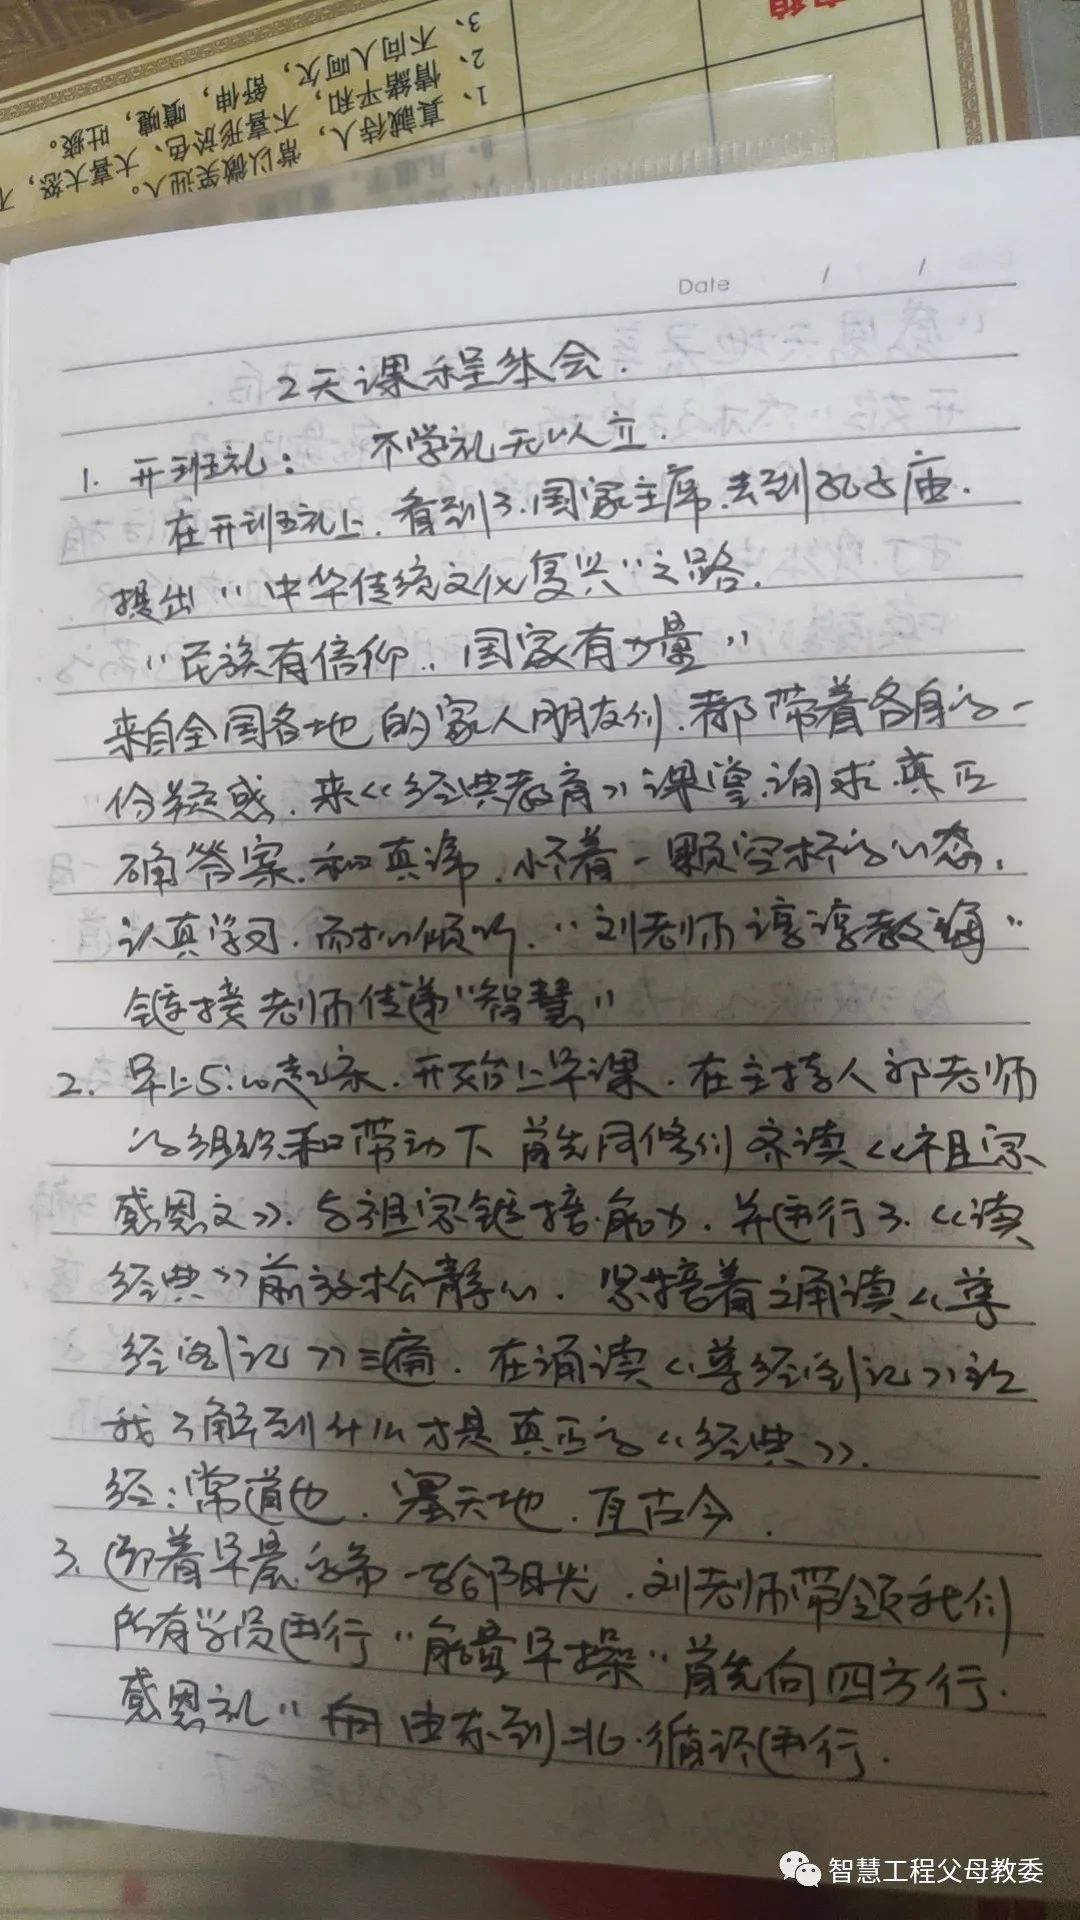 1、真誠待人，常以微笑迎人。
2、情緒平和，不喜形於色、大喜大怒，
3、不向人呵欠，舒伸，噴嚏，吐痰。
Date / /
2天课程体会.
1. 开班礼： 不学礼无以立.
在开班礼上.看到了.国家主席.去到孔子庙.
提出"中华传统文化复兴"之路.
"民族有信仰..国家有力量"
来自全国各地的家人朋友们.都带着各自的一
份疑惑.来《经典教育》课堂.询求.真正
确答案.和真谛.怀着一颗空杯的心态,
认真学习.而水心倾听."刘老师谆谆教诲"
链接老师传递"智慧"
2. 早上5:00起床.开始上早课.在主持人郭老师
的组织和带动下首先同修们齐读《祖宗
感恩文》.与祖宗链接.能力.并进行了.《读
经典》前放松静心.紧接着诵读《尊
经阁记》三遍.在诵读《尊经阁记》之
我了解到什么才是真正的《经典》.
经:常道也.塞天地.亘古今.
3. 迎着早晨的第一轮阳光.刘老师带领我们
所有学员进行"能量早操"首先向四方行.
感恩礼" 由东到北.循环进行.
智慧工程父母教委